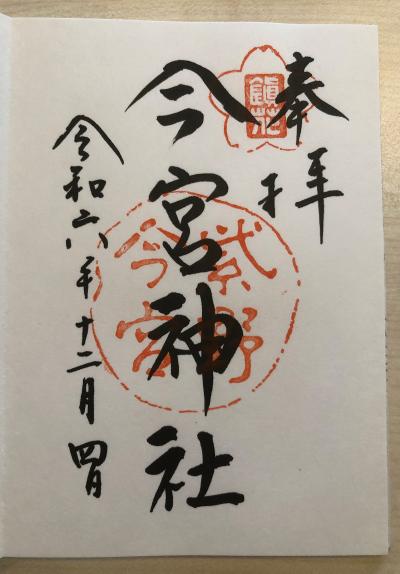 奉拝
今宮神社
令和六年十二月四日
紫野
今宮